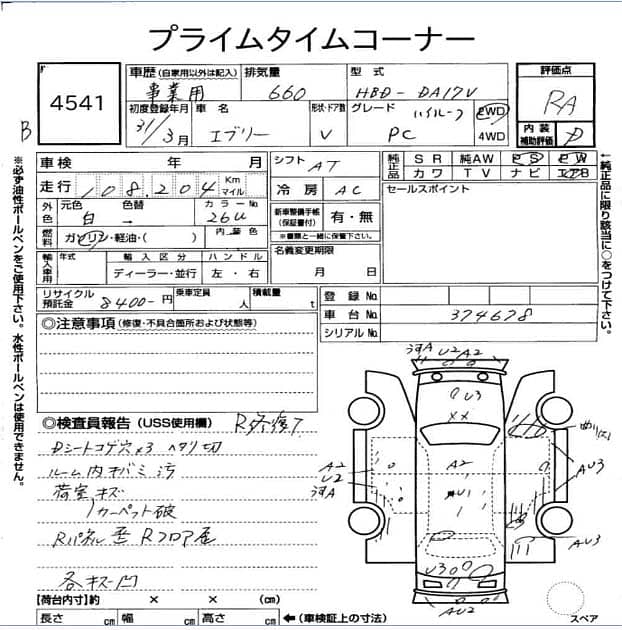 プライムタイムコーナー
4541
B
車歴 (自家用以外は記入) 事業用
排気量 660
型式 HBD-DA17V
評価点 RA
初度登録年月 31/3月
車名 エブリー
形状・ドア数 V
グレード ハイルーフ PC
2WD
4WD
内装補助評価 D
車検 年 月
シフト AT
純正品 SR 純AW PS PW
カワ TV ナビ エアB
走行 108,204 Km マイル
冷房 AC
セールスポイント
外色 元色 白 色替 → カラーNo 26U
新車整備手帳 (保証書付) 有・無
※書類と一緒に保管下さい。
燃料 ガソリン・軽油・( ) 内装色
名義変更期限 月 日
輸入車用 年式 輸入区分 ハンドル
ディーラー・並行 左・右
リサイクル預託金 8400-円
乗車定員 人
積載量 t
登録No.
車台No. 374678
シリアルNo.
◎注意事項 (修復・不具合箇所および状態等)
◎検査員報告 (USS使用欄) R修復了
Dシートコゲ穴×3 ヘタリ切
ルーム内キバミ汚
荷室キズ
カーペット破
Rパネル歪 Rフロア歪
各キズ凹
【荷台内寸】約 × × (cm)
長さ cm 幅 cm 高さ cm ←(車検証上の寸法)
スペア
※必ず油性ボールペンをご使用下さい。水性ボールペンは使用できません。
←純正品に限り該当に○をつけて下さい。
U2 A2
U3
××
A2
U2
A2
U1
AU3
AU3
U3
AU2